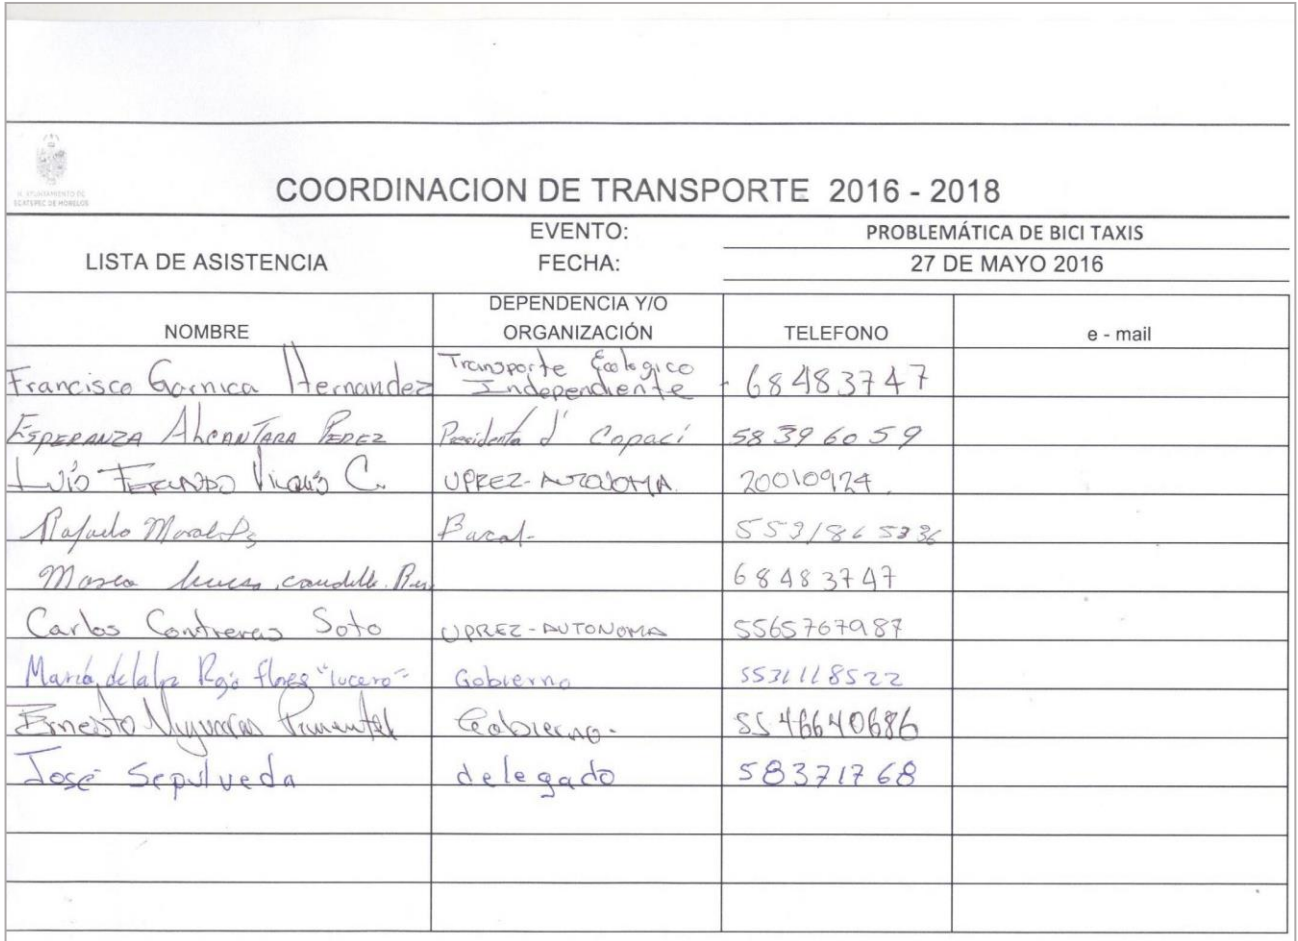 H. AYUNTAMIENTO DE
ECATEPEC DE MORELOS
COORDINACION DE TRANSPORTE 2016 - 2018
LISTA DE ASISTENCIA
EVENTO: PROBLEMÁTICA DE BICI TAXIS
FECHA: 27 DE MAYO 2016
NOMBRE DEPENDENCIA Y/O ORGANIZACIÓN TELEFONO e - mail
Francisco Garnica Hernandez Transporte Ecologico Independiente - 68483747
ESPERANZA ALCANTARA PEREZ Presidenta d' Copaci 58396059
LUIS FERNANDO C. UPREZ-AUTONOMA. 20010924
Morales 5531865336
68483747
Carlos Contreras Soto UPREZ-AUTONOMA 5565767987
María de la luz flores "lucero" Gobierno 5531118522
Ernesto Pimentel Gobierno. 5546640686
José Sepulveda delegado 58371768